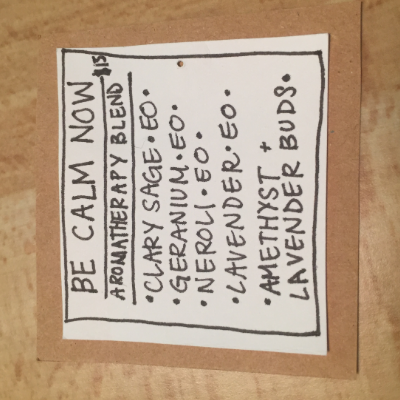 BE CALM NOW
AROMATHERAPY BLEND $15
• CLARY SAGE • EO •
• GERANIUM • EO •
• NEROLI • EO •
• LAVENDER • EO •
• AMETHYST +
LAVENDER BUDS •